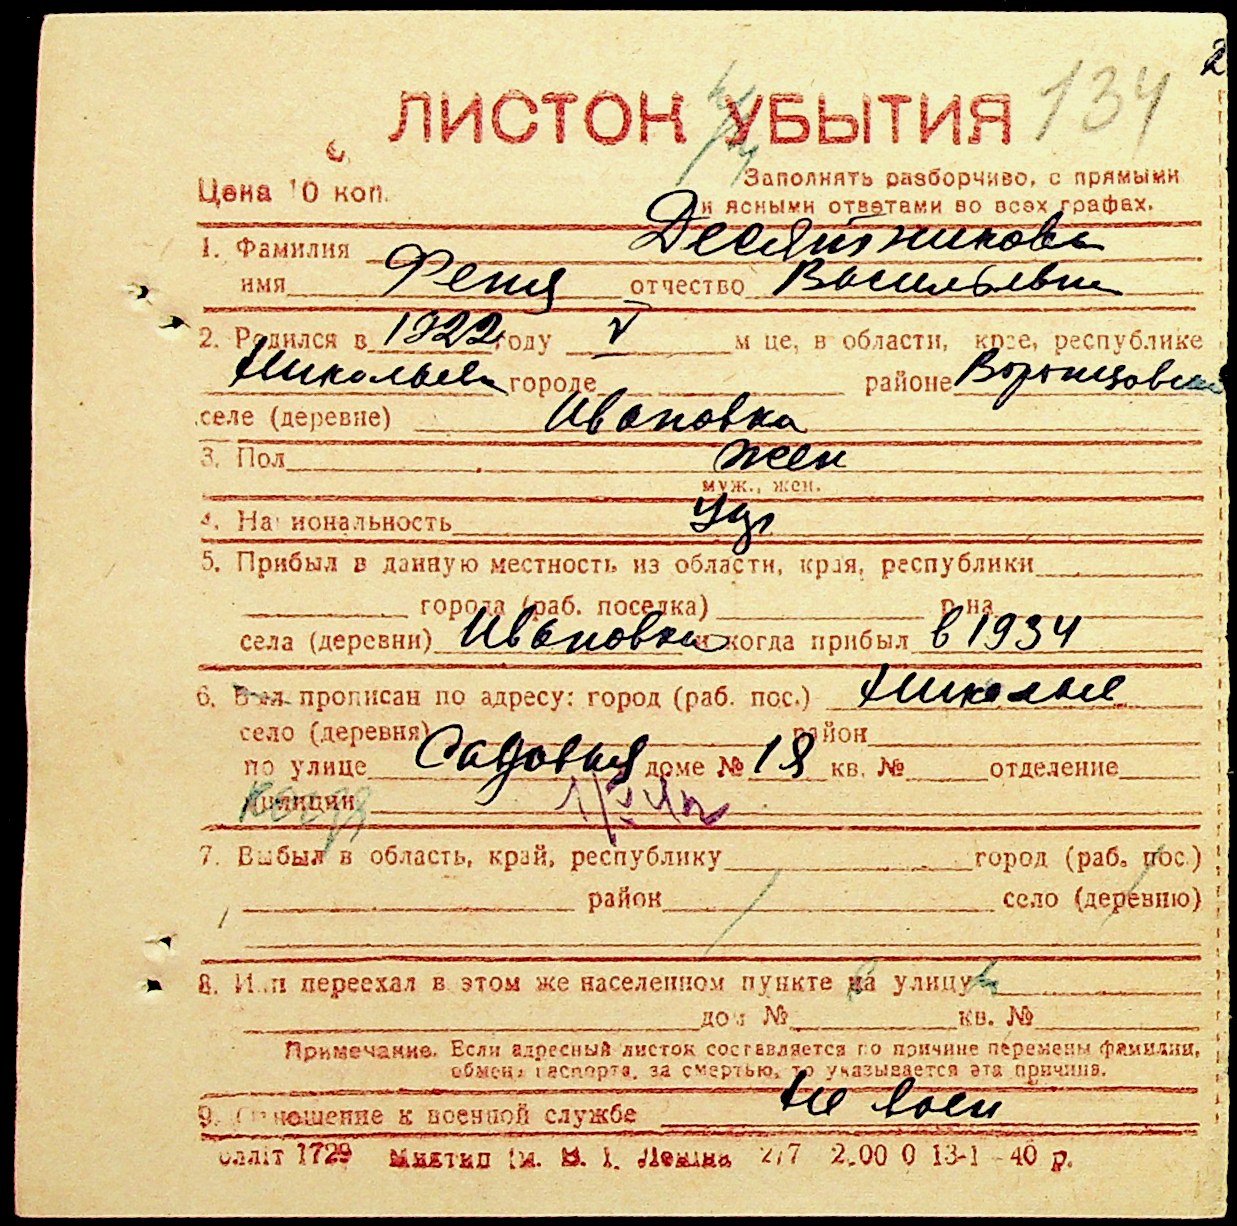 2
134
ЛИСТОК УБЫТИЯ
Цена 10 коп.
Заполнять разборчиво, с прямыми
и ясными ответами во всех графах.
1. Фамилия Десятникова
имя Феня отчество Васильевна
2. Родился в 1922 году V м це, в области, крае, республике
Николаев городе районе Воронцовский
селе (деревне) Ивановка
3. Пол жен
муж., жен.
4. Национальность
5. Прибыл в данную местность из области, края, республики
города (раб. поселка) р на
села (деревни) Ивановка и когда прибыл в 1934
6. Был прописан по адресу: город (раб. пос.) Николаев
село (деревня) район
по улице Садовая доме № 18 кв. № отделение
милиции
7. Выбыл в область, край, республику город (раб. пос.)
район село (деревню)
8. Или переехал в этом же населенном пункте на улицу
дом № кв. №
Примечание. Если адресный листок составляется по причине перемены фамилии,
обмена паспорта, за смертью, то указывается эта причина.
9. Отношение к военной службе не воен
1729 Миктип ім. В. І. Леніна 2.00 0 13-1 - 40 р.